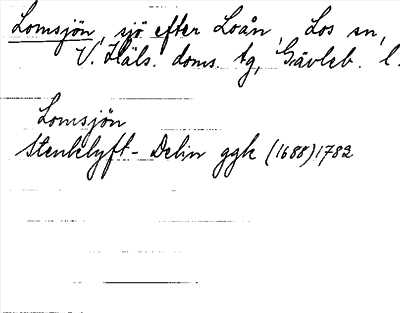 Lomsjön, sjö efter Loån, Los sn,
V. Häls. doms. tg, Gävleb. l.
Lomsjön
Stenklyft - Delin ggk (1688) 1782